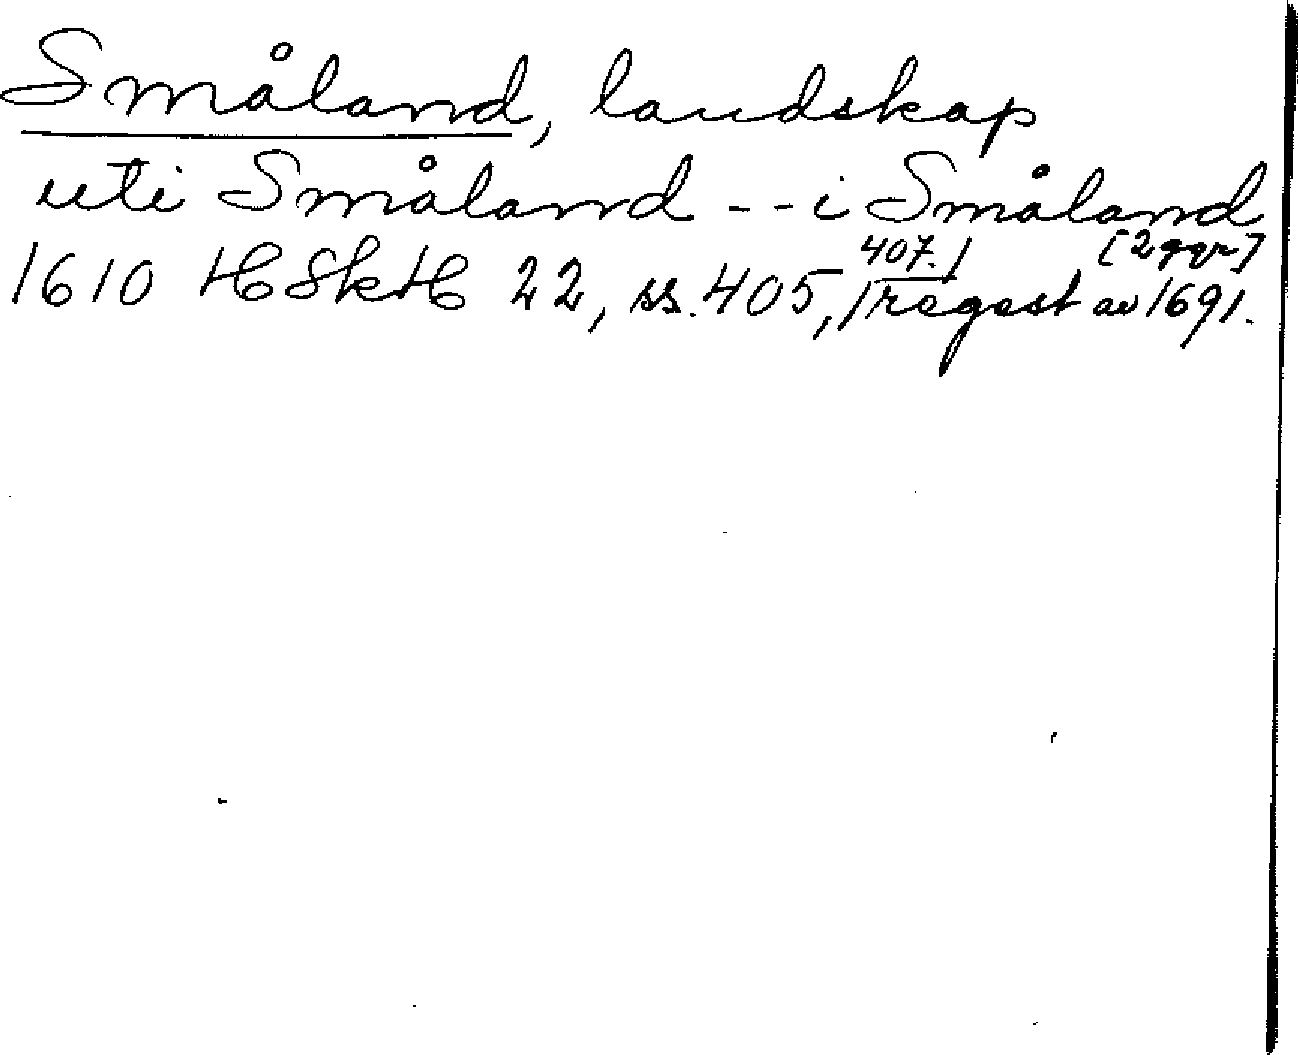 Småland, landskap
uti Småland -- i Småland [2 ggr]
1610 HSkH 22, ss. 405, 407. regest av 1691.